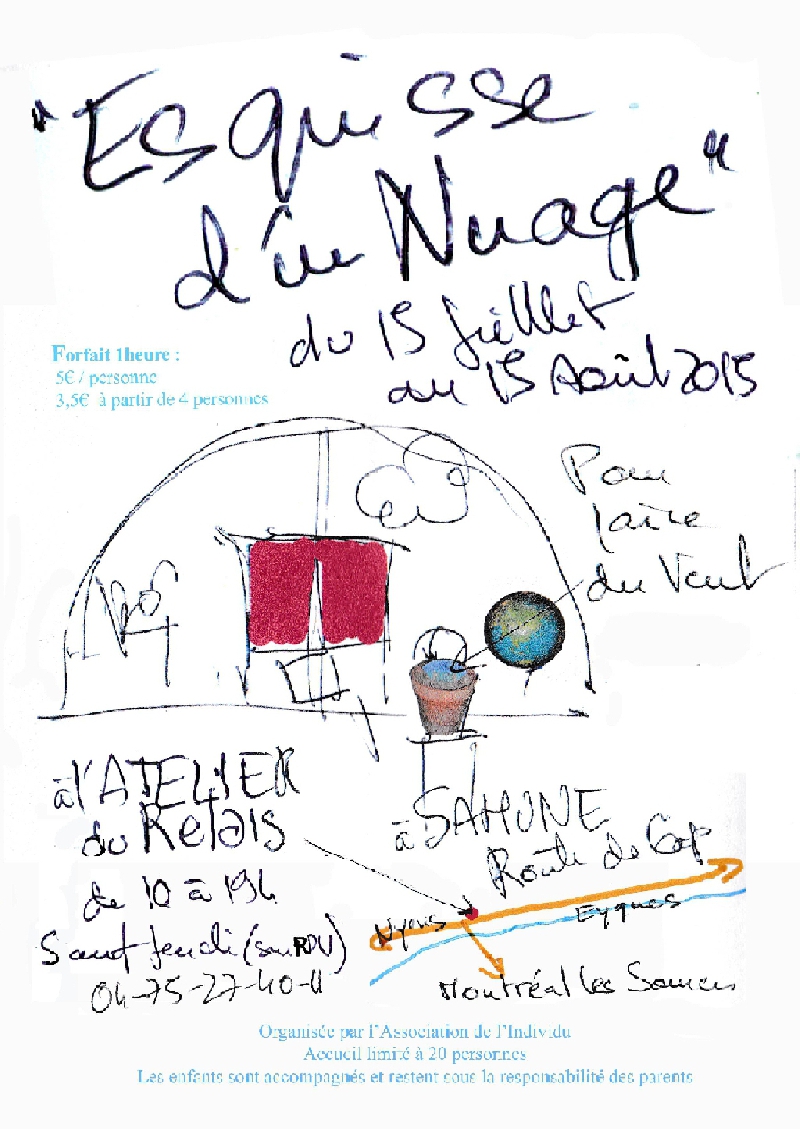 "Esquisse
d'un Nuage"
du 15 Juillet
au 15 Août 2015
Forfait 1heure :
5€ / personne
3,5€ à partir de 4 personnes
Pour
faire
du Vent
à l'ATELIER
du Relais
de 10 à 19h
Sauf Jeudi (sur RDV)
04-75-27-40-11
à SAHUNE
Route de Gap
Nyons
Eygues
Montréal les Sources
Organisée par l'Association de l'Individu
Accueil limité à 20 personnes
Les enfants sont accompagnés et restent sous la responsabilité des parents